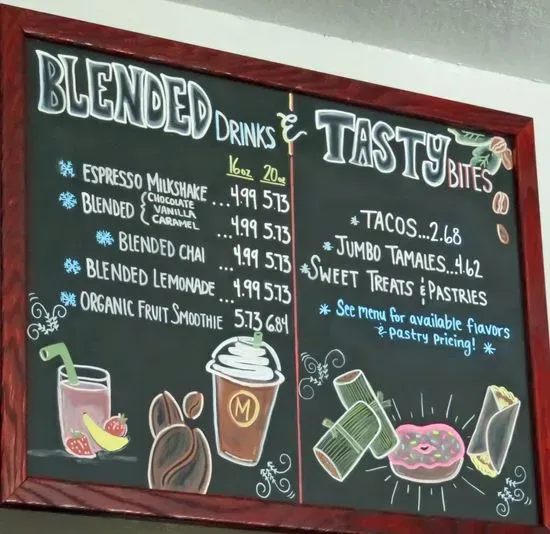 BLENDED DRINKS &
16oz 20oz
ESPRESSO MILKSHAKE ...4.99 5.73
BLENDED { CHOCOLATE VANILLA CARAMEL ...4.99 5.73
BLENDED CHAI ...4.99 5.73
BLENDED LEMONADE ...4.99 5.73
ORGANIC FRUIT SMOOTHIE 5.73 6.84
M
TASTY BITES
TACOS...2.68
JUMBO TAMALES...4.62
SWEET TREATS & PASTRIES
* See menu for available flavors
& pastry pricing! *